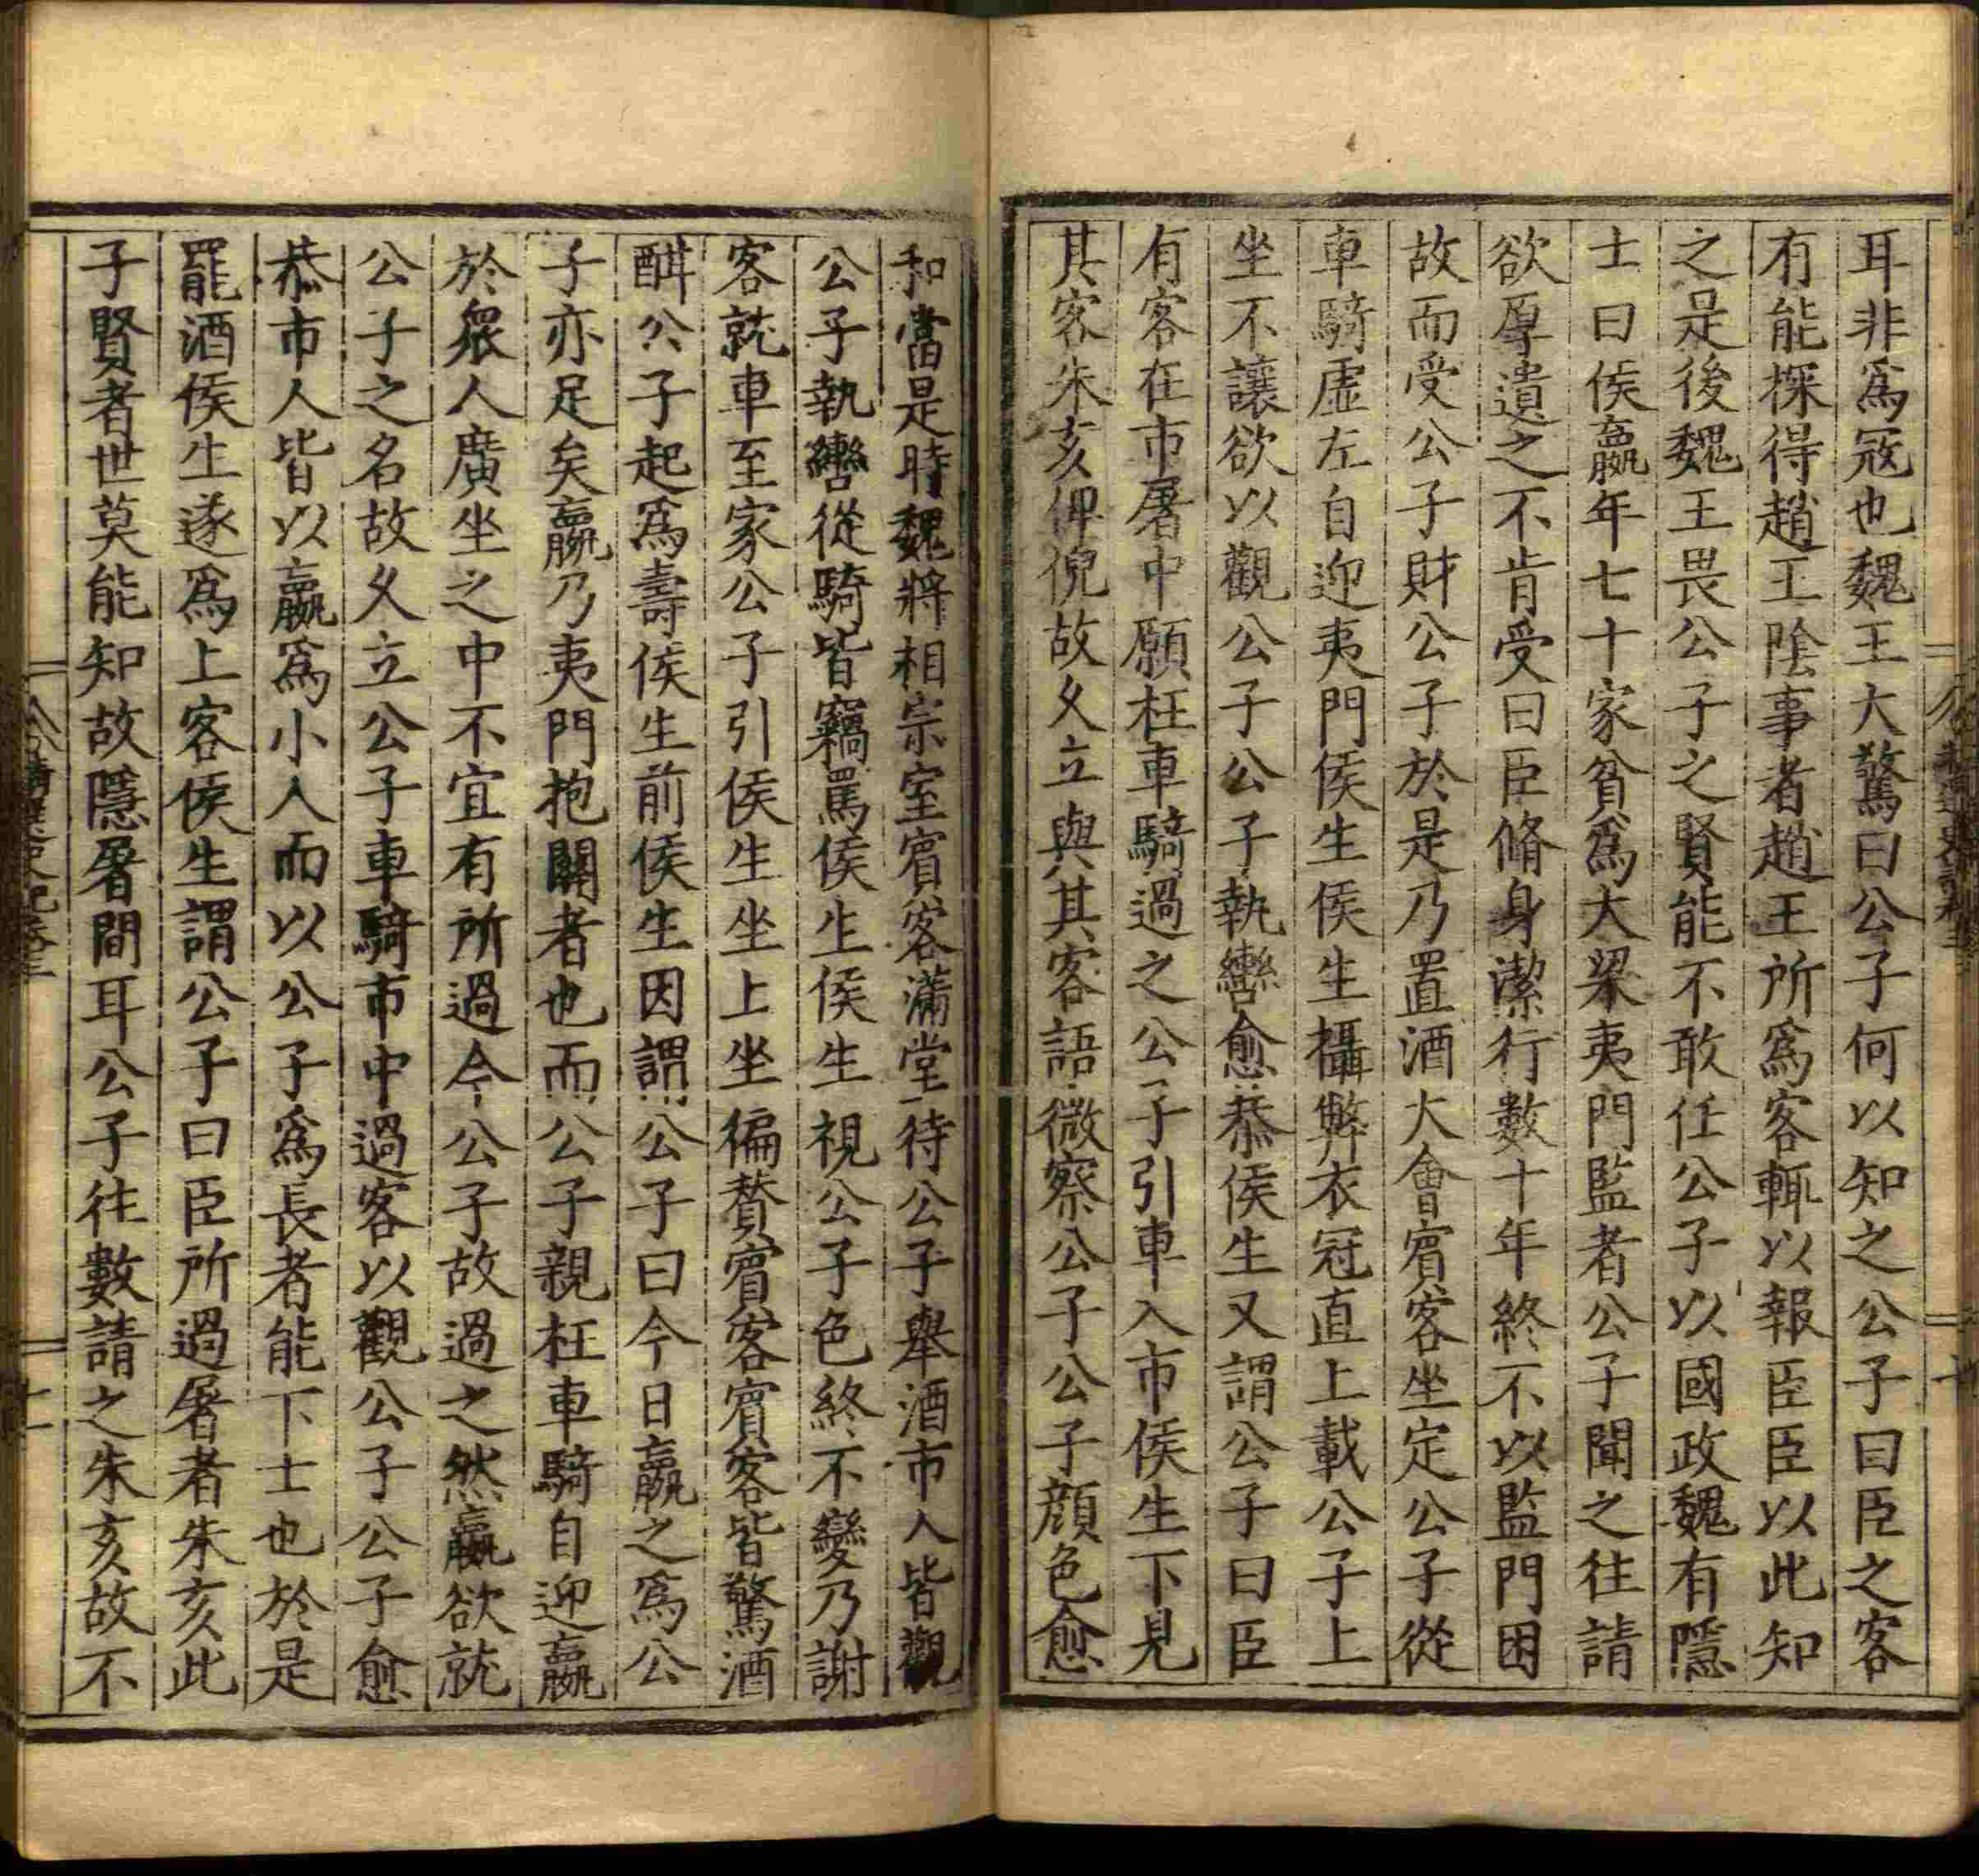 耳非爲寇也魏王大驚曰公子何以知之公子曰臣之客
有能探得趙王陰事者趙王所爲客輒以報臣臣以此知
之是後魏王畏公子之賢能不敢任公子以國政魏有隱
士曰侯嬴年七十家貧爲大梁夷門監者公子聞之往請
欲厚遺之不肯受曰臣脩身潔行數十年終不以監門困
故而受公子財公子於是乃置酒大會賓客坐定公子從
車騎虛左自迎夷門侯生侯生攝弊衣冠直上載公子上
坐不讓欲以觀公子公子執轡愈恭侯生又謂公子曰臣
有客在市屠中願枉車騎過之公子引車入市侯生下見
其客朱亥俾倪故久立與其客語微察公子公子顏色愈
和當是時魏將相宗室賓客滿堂待公子舉酒市人皆觀
公子執轡從騎皆竊罵侯生侯生視公子色終不變乃謝
客就車至家公子引侯生坐上坐徧贊賓客賓客皆驚酒
酣公子起爲壽侯生前侯生因謂公子曰今日嬴之爲公
子亦足矣嬴乃夷門抱關者也而公子親枉車騎自迎嬴
於衆人廣坐之中不宜有所過今公子故過之然嬴欲就
公子之名故久立公子車騎市中過客以觀公子公子愈
恭市人皆以嬴爲小人而以公子爲長者能下士也於是
罷酒侯生遂爲上客侯生謂公子曰臣所過屠者朱亥此
子賢者世莫能知故隱屠間耳公子往數請之朱亥故不